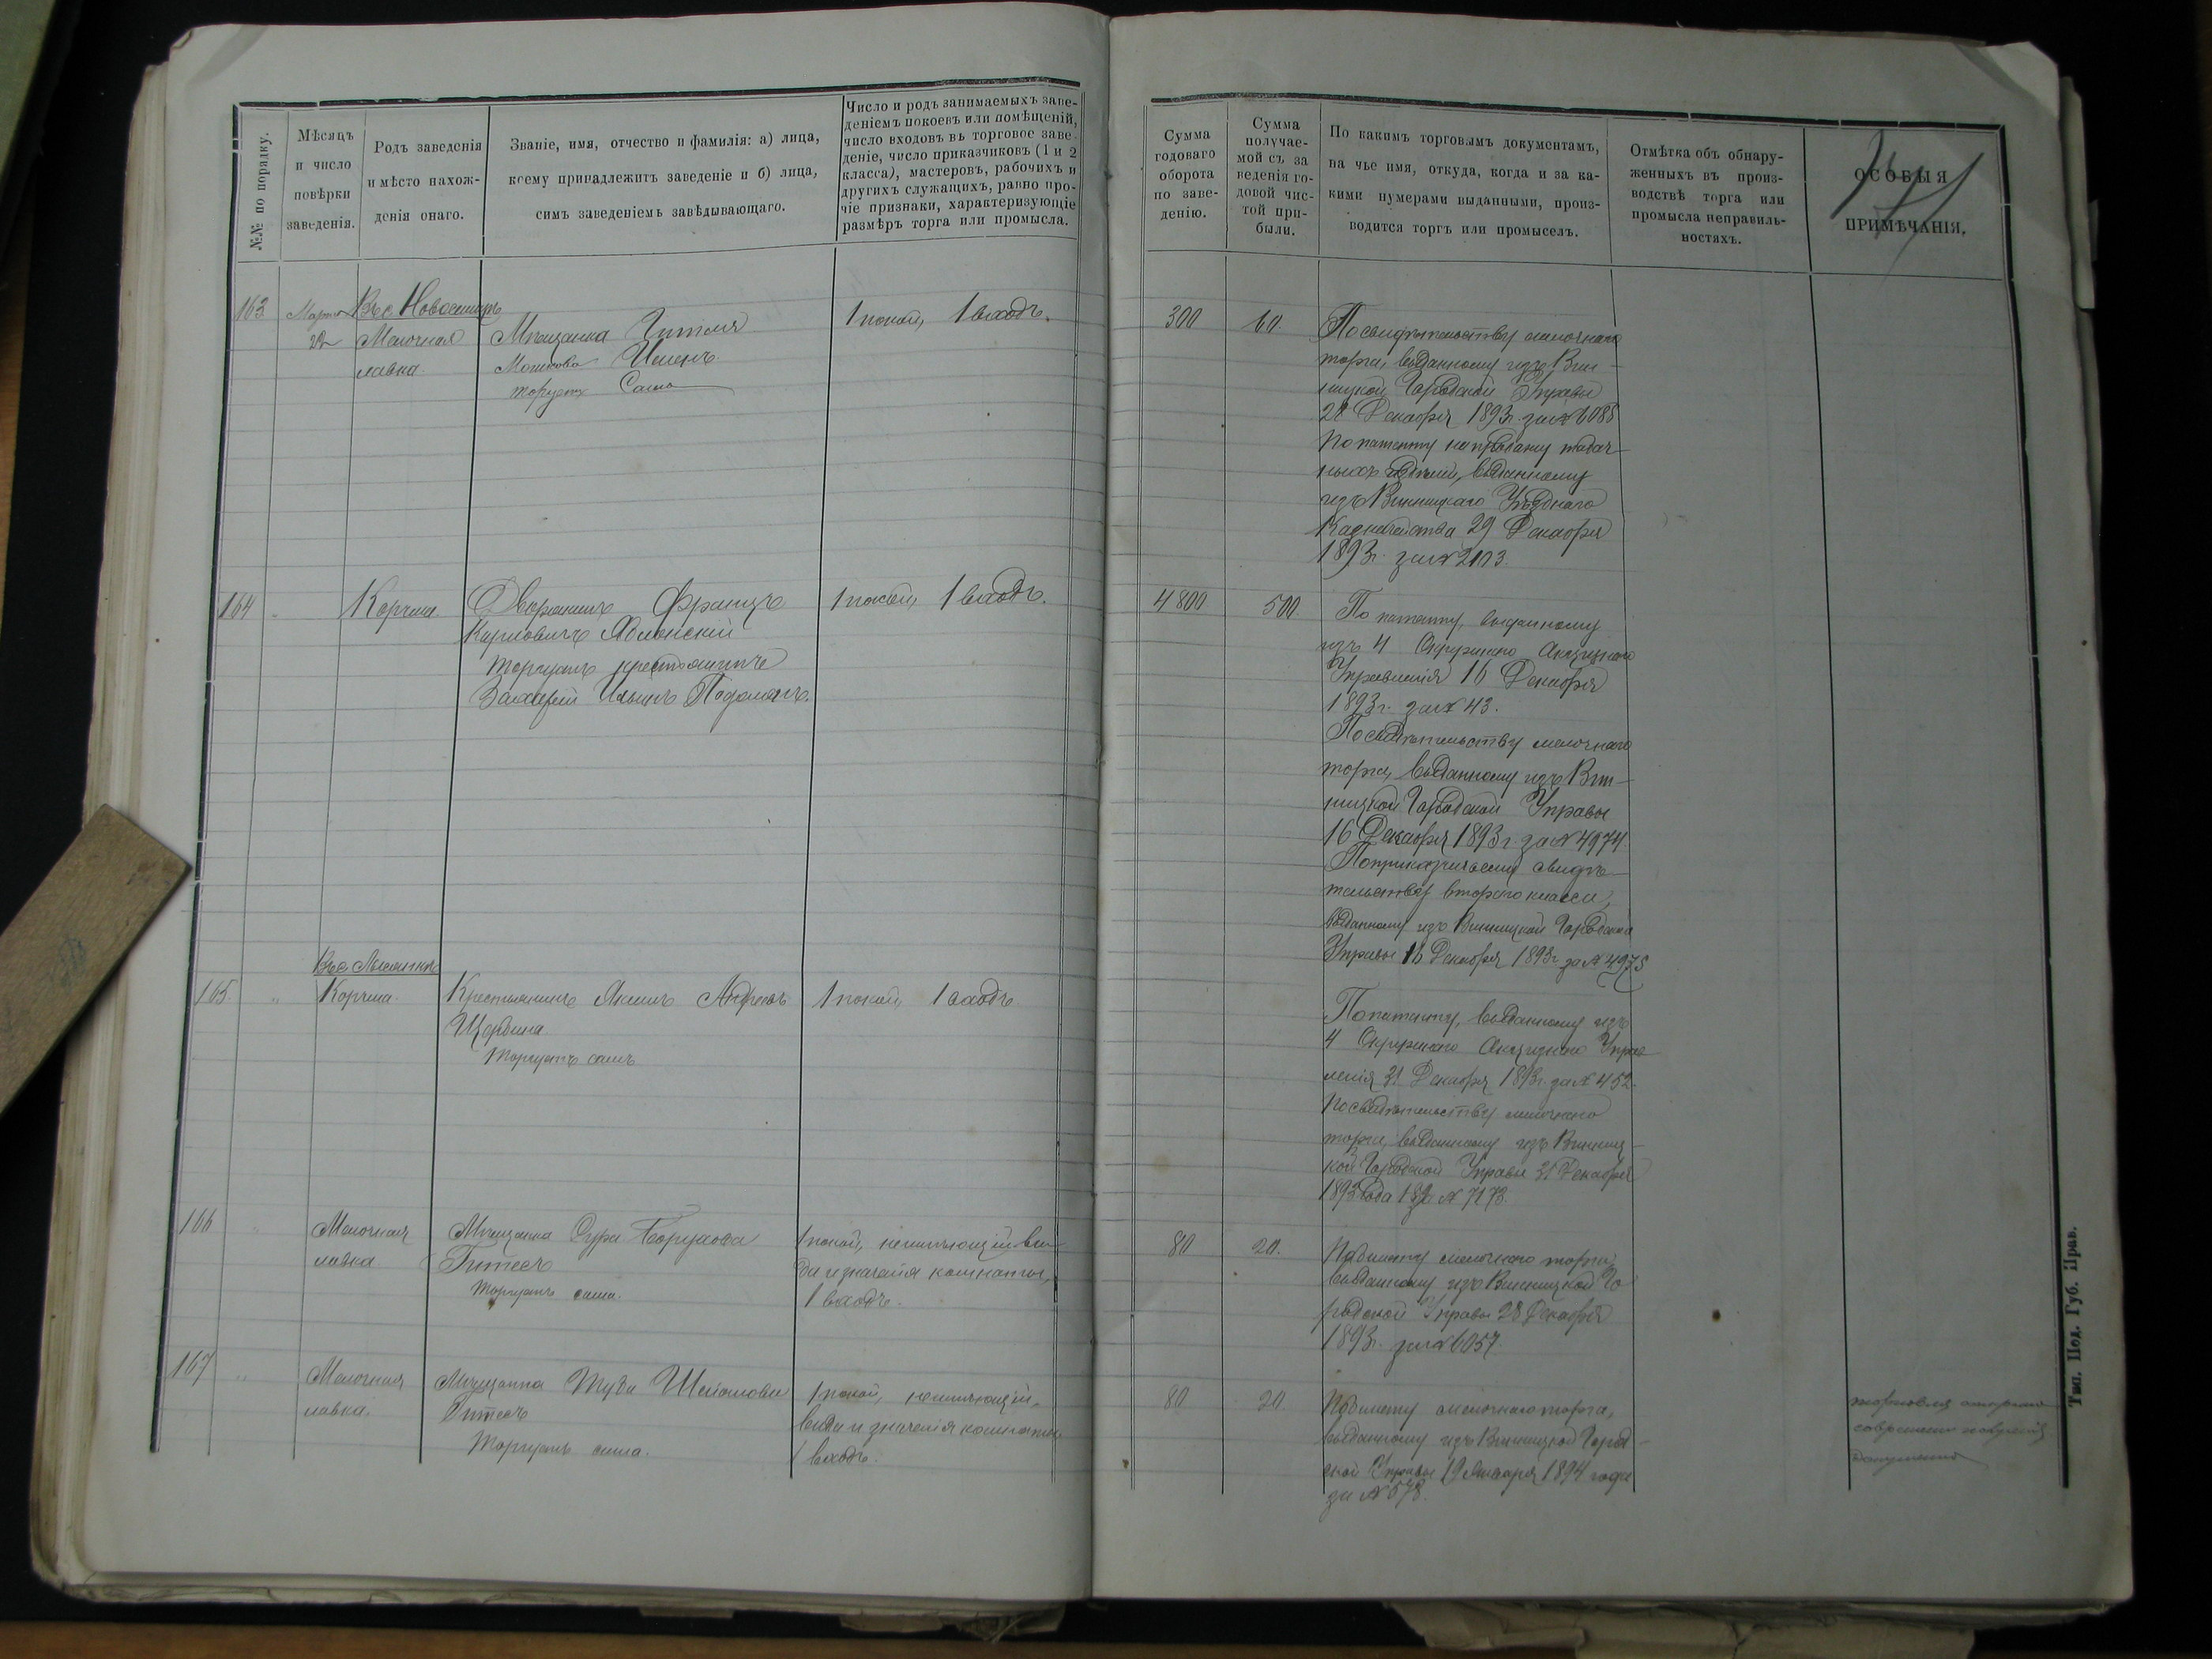 №№ по порядку.
Мѣсяцъ
и число
повѣрки
заведенія.
Родъ заведенія
и мѣсто нахож-
денія онаго.
Званіе, имя, отчество и фамилія: а) лица,
коему принадлежитъ заведеніе и б) лица,
симъ заведеніемъ завѣдывающаго.
Число и родъ занимаемыхъ заве-
деніемъ покоевъ или помѣщеній,
число входовъ въ торговое заве-
деніе, число приказчиковъ (1 и 2
класса), мастеровъ, рабочихъ и
другихъ служащихъ, равно про-
чіе признаки, характеризующіе
размѣръ торга или промысла.
Сумма
годоваго
оборота
по заве-
денію.
Сумма
получае-
мой съ за
веденія го-
довой чис-
той при-
были.
По какимъ торговымъ документамъ,
на чье имя, откуда, когда и за ка-
кими нумерами выданными, произ-
водится торгъ или промыселъ.
Отмѣтка объ обнару-
женныхъ въ произ-
водствѣ торга или
промысла неправиль-
ностяхъ.
ОСОБЫЯ
ПРИМѢЧАНІЯ.
163
Марта
22
Въ с
Мелочная
лавка.
Мѣщанка
Мошкова
торгуетъ Сама
1 покой, 1 входъ.
300
60.
По свидѣтельству мелочнаго
торга, выданному изъ Вин-
ницкой Городской Управы
28 Декабря 1893 г. за № 6088
По патенту на продажу табач-
ныхъ издѣлій, выданному
изъ Винницкаго Уѣзднаго
Казначейства 29 Декабря
1893 г. за №
164
Корчма.
Дворянинъ Францъ
Карловичъ
торгуетъ крестьянинъ
Захарій Ильинъ
1 покой, 1 входъ.
4800
500.
По патенту, выданному
изъ 4 Окружнаго Акцизнаго
Управленія 16 Декабря
1893 г. за № 43.
По свидѣтельству мелочнаго
торга, выданному изъ Вин-
ницкой Городской Управы
16 Декабря 1893 г. за № 4974.
По приказчичьему свидѣ-
тельству второго класса,
выданному изъ Винницкой Городской
Управы 16 Декабря 1893 г. за № 4975
165
"
Въ с.
Корчма.
Крестьянинъ Якимъ Андреевъ
Щербина.
Торгуетъ самъ
1 покой 1 входъ.
По патенту, выданному изъ
4 Окружнаго Акцизнаго Управ
ленія 31 Декабря 1893 г. за № 452.
По свидѣтельству мелочнаго
торга, выданному изъ Винниц-
кой Городской Управы 31 Декабря
1893 года за № 7173.
166
"
Мелочная
лавка.
Мѣщанка Сура Борухова
Гитесъ
Торгуетъ сама.
1 покой, неимѣющій ви-
да и значенія комнаты,
1 входъ.
80
20.
По билету мелочнаго торга,
выданному изъ Винницкой Го
родской Управы 28 Декабря
1893 г. за № 6057.
167
"
Мелочная
лавка.
Мѣщанка
Гитесъ
Торгуетъ сама.
1 покой, неимѣющій
вида и значенія комнаты
1 входъ.
80
20
По билету мелочнаго торга,
выданному изъ Винницкой Город-
ской Управы 19 Января 1894 года
за № 578.
торговля открыта
документа
Тип. Под. Губ. Прав.